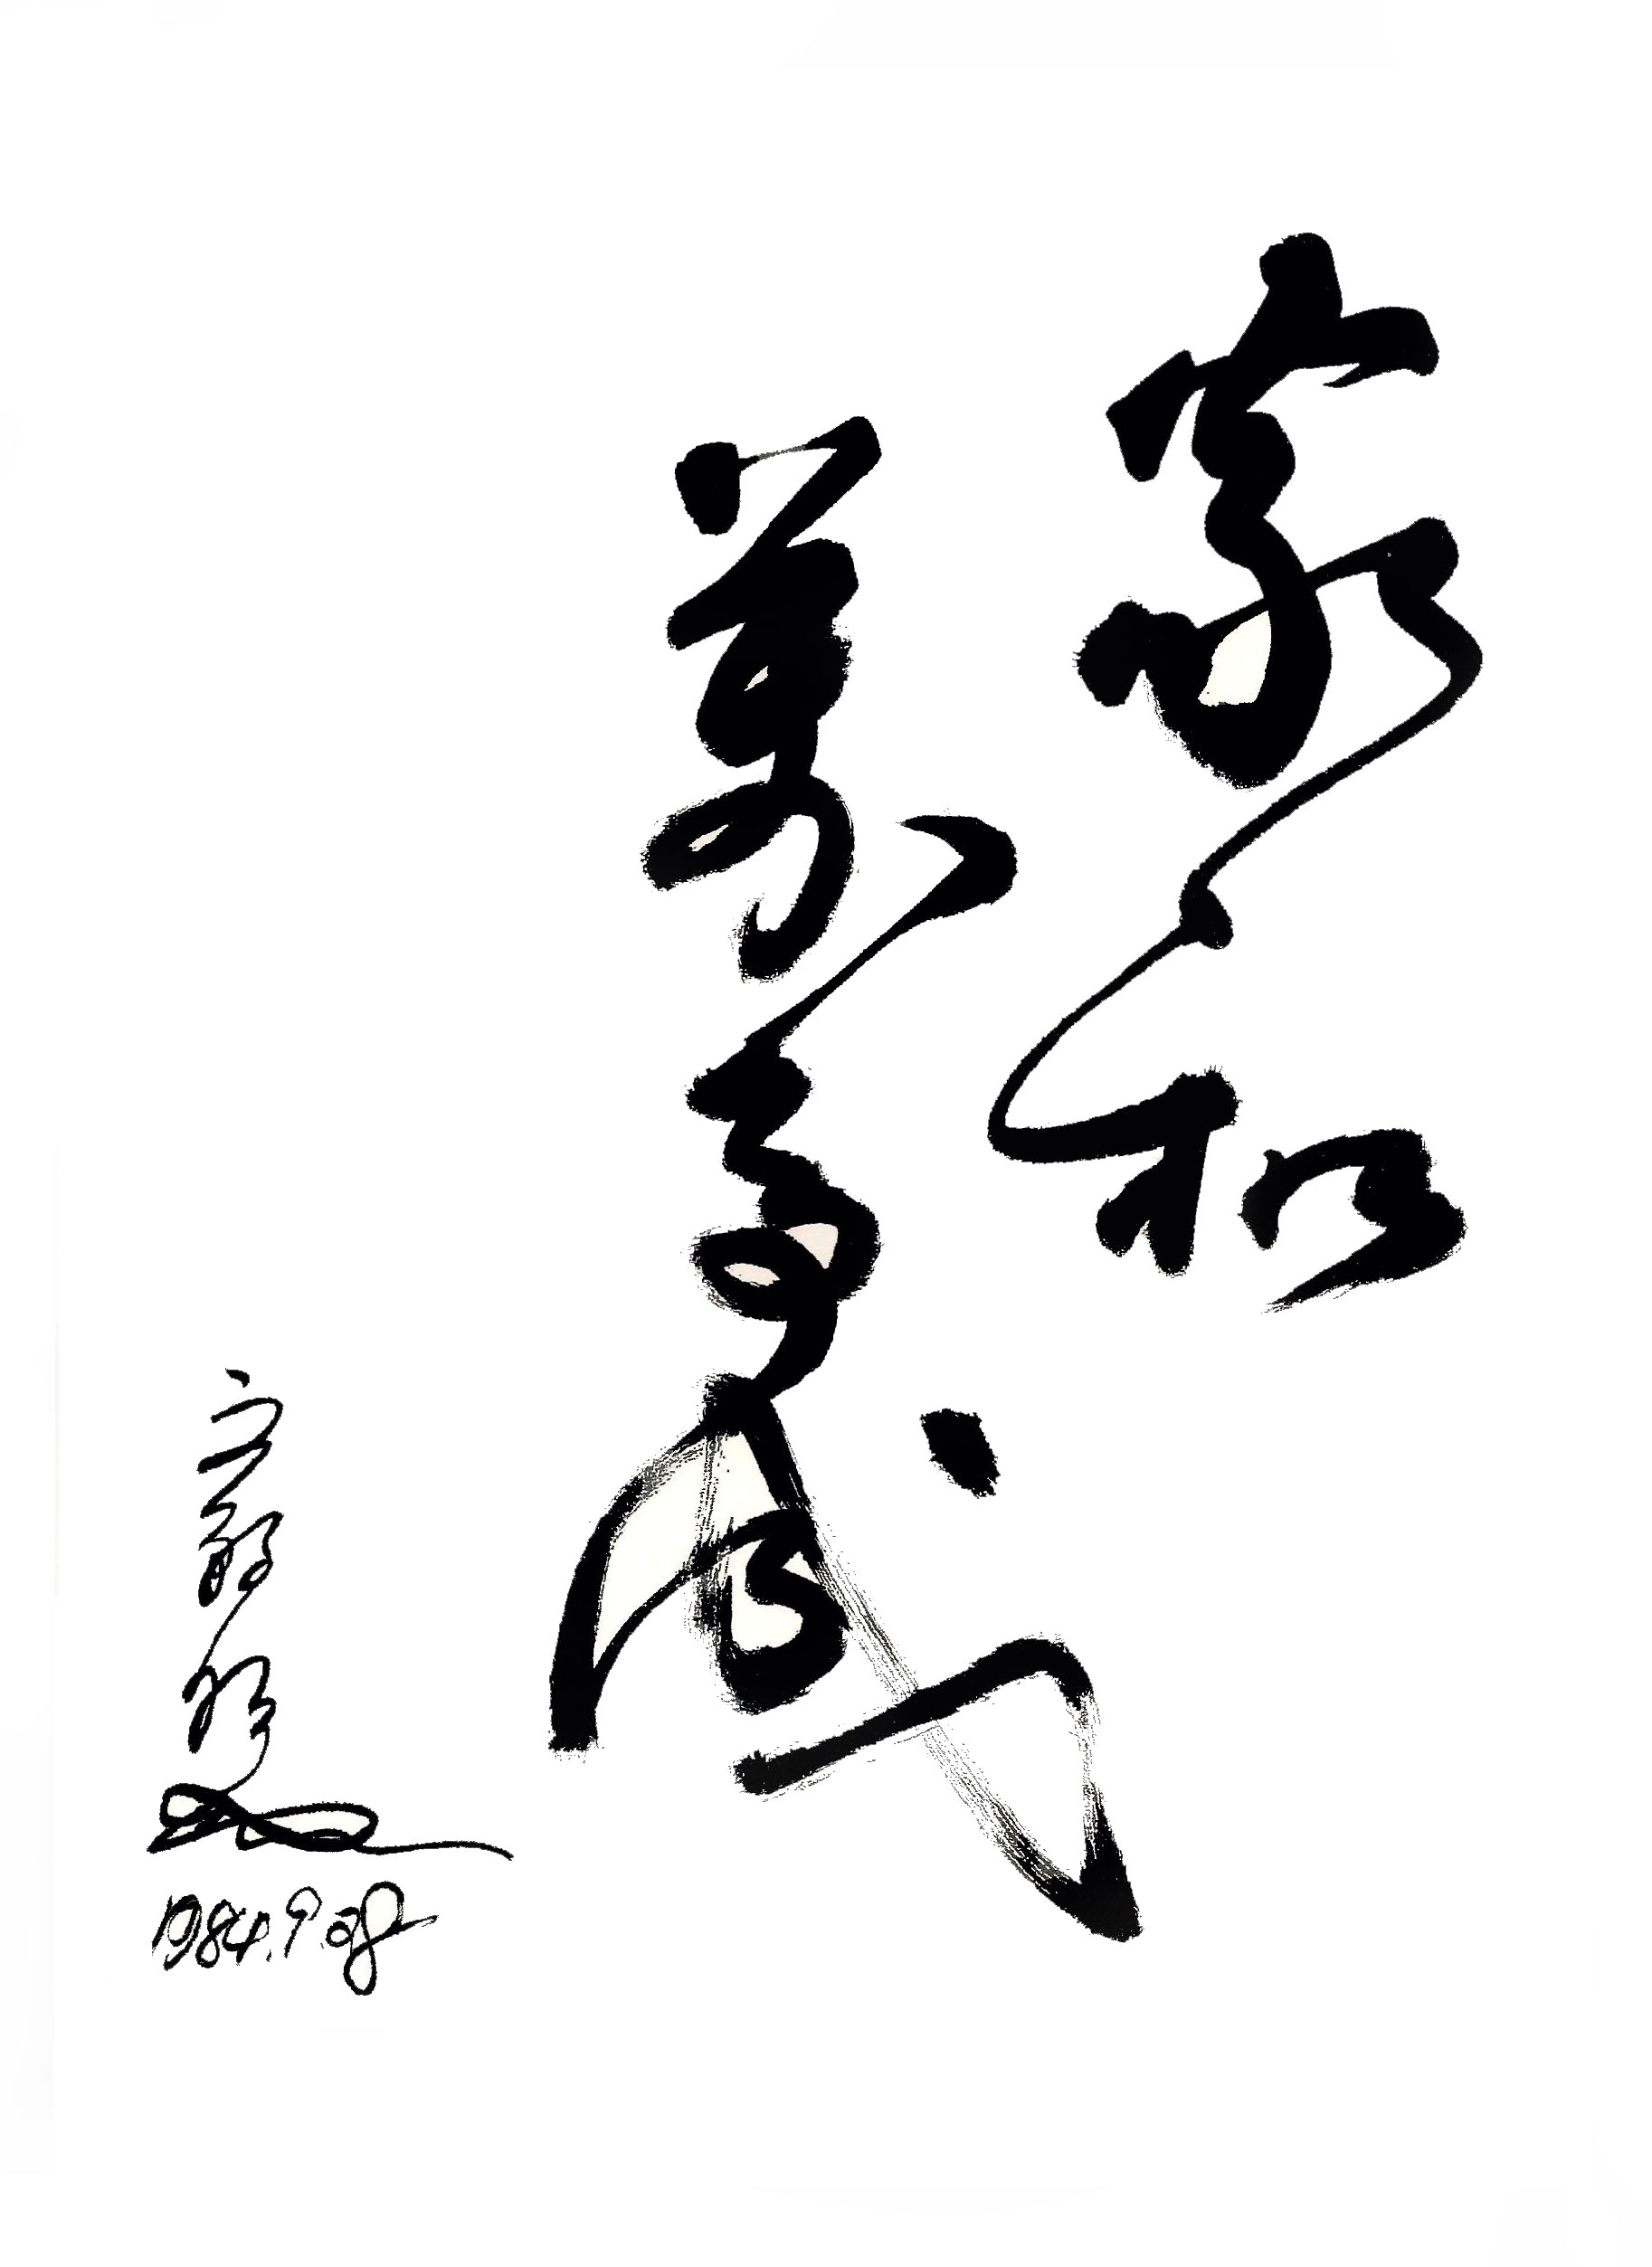 家和
萬事成
1984.9.28